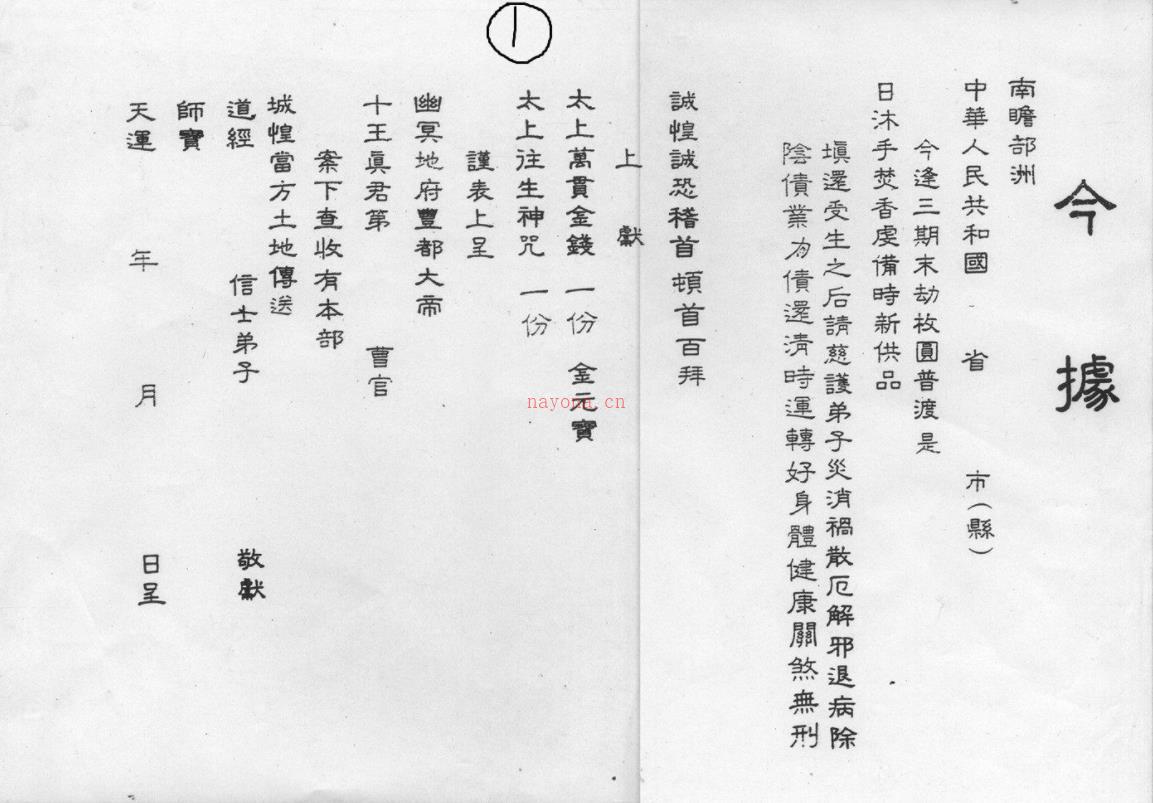 ①
今據
南瞻部洲
中華人民共和國 省 市（縣）
今逢三期末劫枚圓普渡是
日沐手焚香虔備時新供品
填還受生之后請慈護弟子災消禍散厄解邪退病除
陰債業為債還清時運轉好身體健康關煞無刑
誠惶誠恐稽首頓首百拜
上獻
太上萬貫金錢一份 金元寶
太上往生神咒一份
謹表上呈
幽冥地府豐都大帝
十王真君第 曹官
案下查收有本部
城惶當方土地傳送
道經 信士弟子 敬獻
師寶
天運 年 月 日呈
nayona.cn